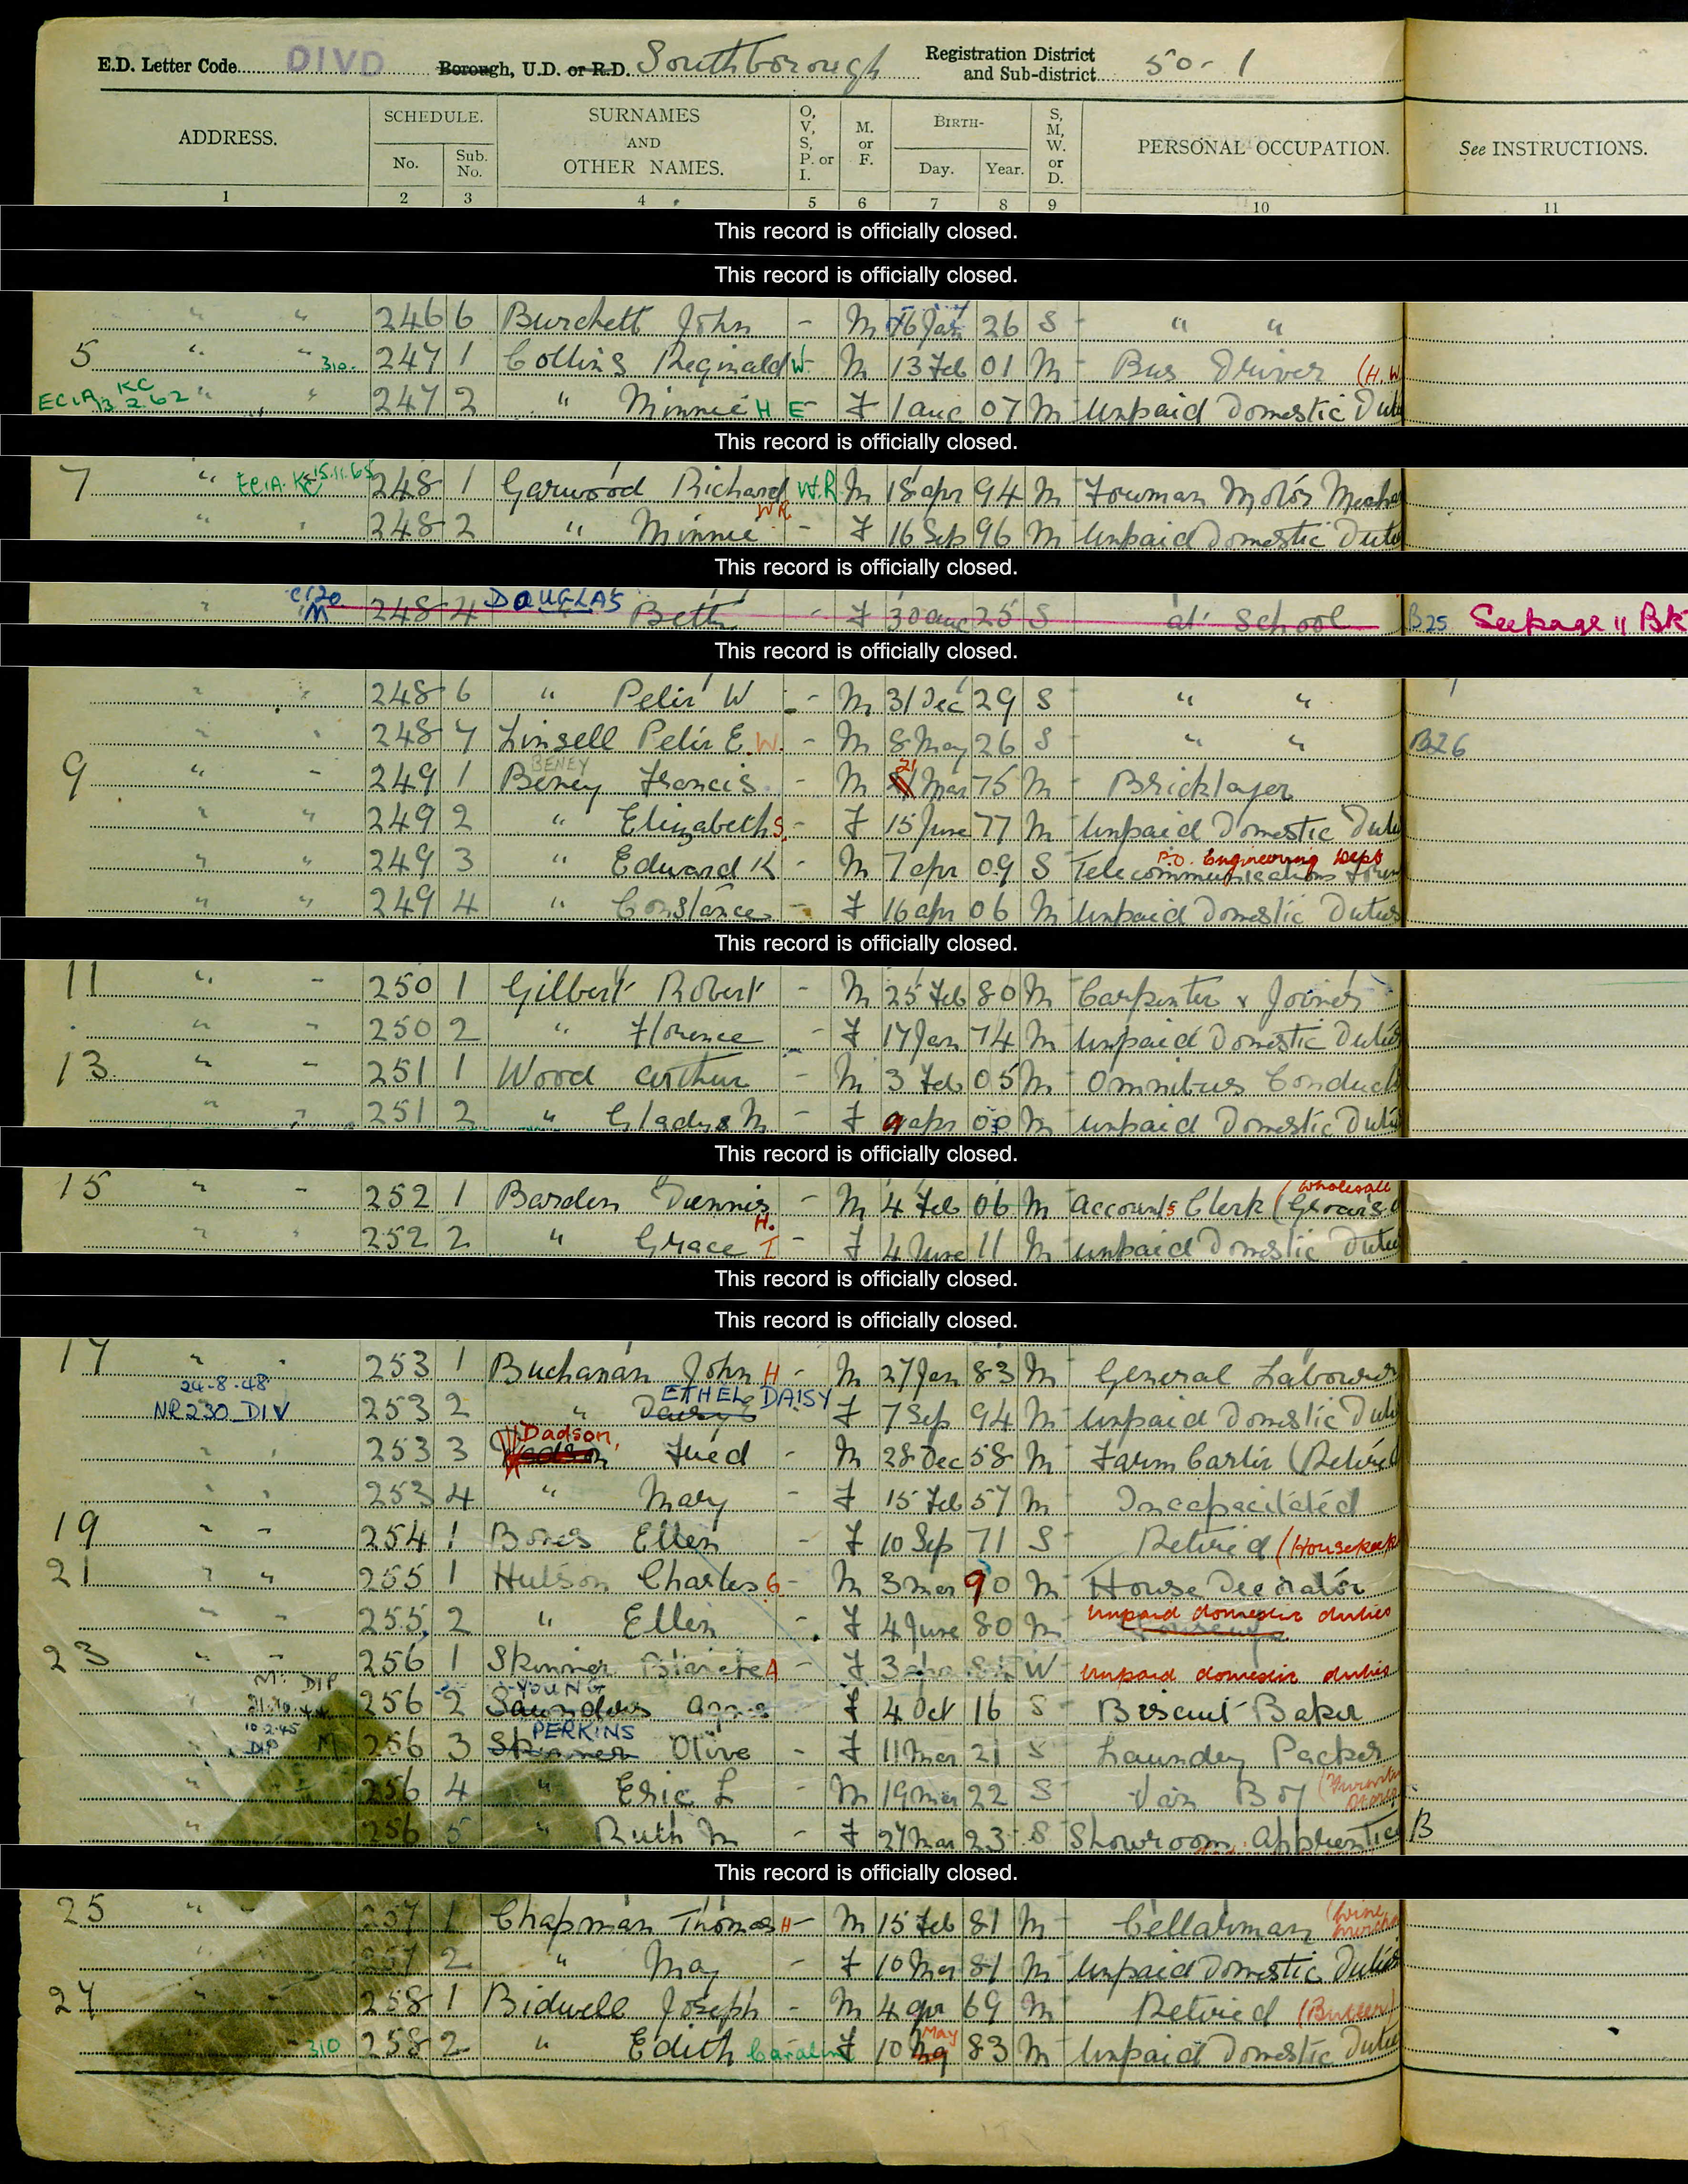 E.D. Letter Code DIVD Borough, U.D. or R.D. Southborough Registration District and Sub-district 50-1
ADDRESS. SCHEDULE. No. Sub. No. SURNAMES AND OTHER NAMES. O, V, S, P. or I. M. or F. BIRTH- Day. Year. S, M, W. or D. PERSONAL OCCUPATION. See INSTRUCTIONS.
1 2 3 4 5 6 7 8 9 10 11
This record is officially closed.
This record is officially closed.
" " 246 6 Burchett John - M 16 Jan 26 S " "
5 " " 310. 247 1 Collins Reginald W. M 13 Feb 01 M Bus Driver (H.W
ECIA KC 3 2 62 " " 247 2 " Minnie H E - F 1 Aug 07 M Unpaid Domestic Dut
This record is officially closed.
7 " ECIA. KC 15.11.65 248 1 Garwood Richard W.R M 18 Apr 94 M Foreman Motor Mecha
" " 248 2 " Minnie W.R. - F 16 Sep 96 M Unpaid Domestic Dutie
This record is officially closed.
" C120 M 248 4 DOUGLAS Betty - F 30 Aug 25 S at School B25 Seepage 11 BK
This record is officially closed.
" " 248 6 " Peter W - M 31 Dec 29 S " "
" " 248 7 Linsell Peter E. W. - M 8 May 26 S " " B26
9 " " 249 1 Beney BENEY Francis - M 21 Mar 75 M Bricklayer
" " 249 2 " Elizabeth S. - F 15 June 77 M Unpaid Domestic Duti
" " 249 3 " Edward K - M 7 Apr 09 S P.O. Engineering Dept Telecommunications
" " 249 4 " Constance - F 16 Apr 06 M Unpaid Domestic Duties
This record is officially closed.
11 " " 250 1 Gilbert Robert - M 25 Feb 80 M Carpenter & Joiner
" " 250 2 " Florence - F 17 Jan 74 M Unpaid Domestic Duties
13 " " 251 1 Wood Arthur - M 3 Feb 05 M Omnibus Conduct
" " 251 2 " Gladys M - F 9 Apr 00 M Unpaid Domestic Dutie
This record is officially closed.
15 " " 252 1 Barden Dennis - M 4 Feb 06 M Accounts Clerk (Wholesale
" " 252 2 " Grace H. I - F 4 June 11 M Unpaid Domestic Dutie
This record is officially closed.
This record is officially closed.
17 " " 253 1 Buchanan John H - M 27 Jan 83 M General Labourer
24-8-48 NR230 DIV 253 2 " Daisy ETHEL DAISY F 7 Sep 94 M Unpaid Domestic Duti
" " 253 3 Dadson, Fred - M 28 Dec 58 M Farm Carter (Retired
" " 253 4 " Mary - F 15 Feb 57 M Incapacitated
19 " " 254 1 Bones Ellen - F 10 Sep 71 S Retired (Housekeeper
21 " " 255 1 Hulson Charles G - M 3 Mar 90 M House Decorator
" " 255 2 " Ellen - F 4 June 80 M Unpaid domestic duties
23 " " 256 1 Skinner A - F 3 W Unpaid domestic duties
M. DIP 256 2 Saunders YOUNG F 4 Oct 16 S Biscuit Baker
10.2.45 DIP M 256 3 Skinner PERKINS Olive - F 11 Mar 21 S Laundry Packer
" " 256 4 " Eric L - M 19 Mar 22 S Van Boy
" 256 5 " Ruth M - F 27 Mar 23 S Showroom Apprentice B
This record is officially closed.
25 " " 257 1 Chapman Thomas H - M 15 Feb 81 M Cellarman (Wine
" 257 2 " May - F 10 Mar 81 M Unpaid Domestic Duties
27 " " 258 1 Bidwell Joseph - M 4 Apr 69 M Retired (Butler)
310 258 2 " Edith Caroline F 10 May 83 M Unpaid Domestic Dutie